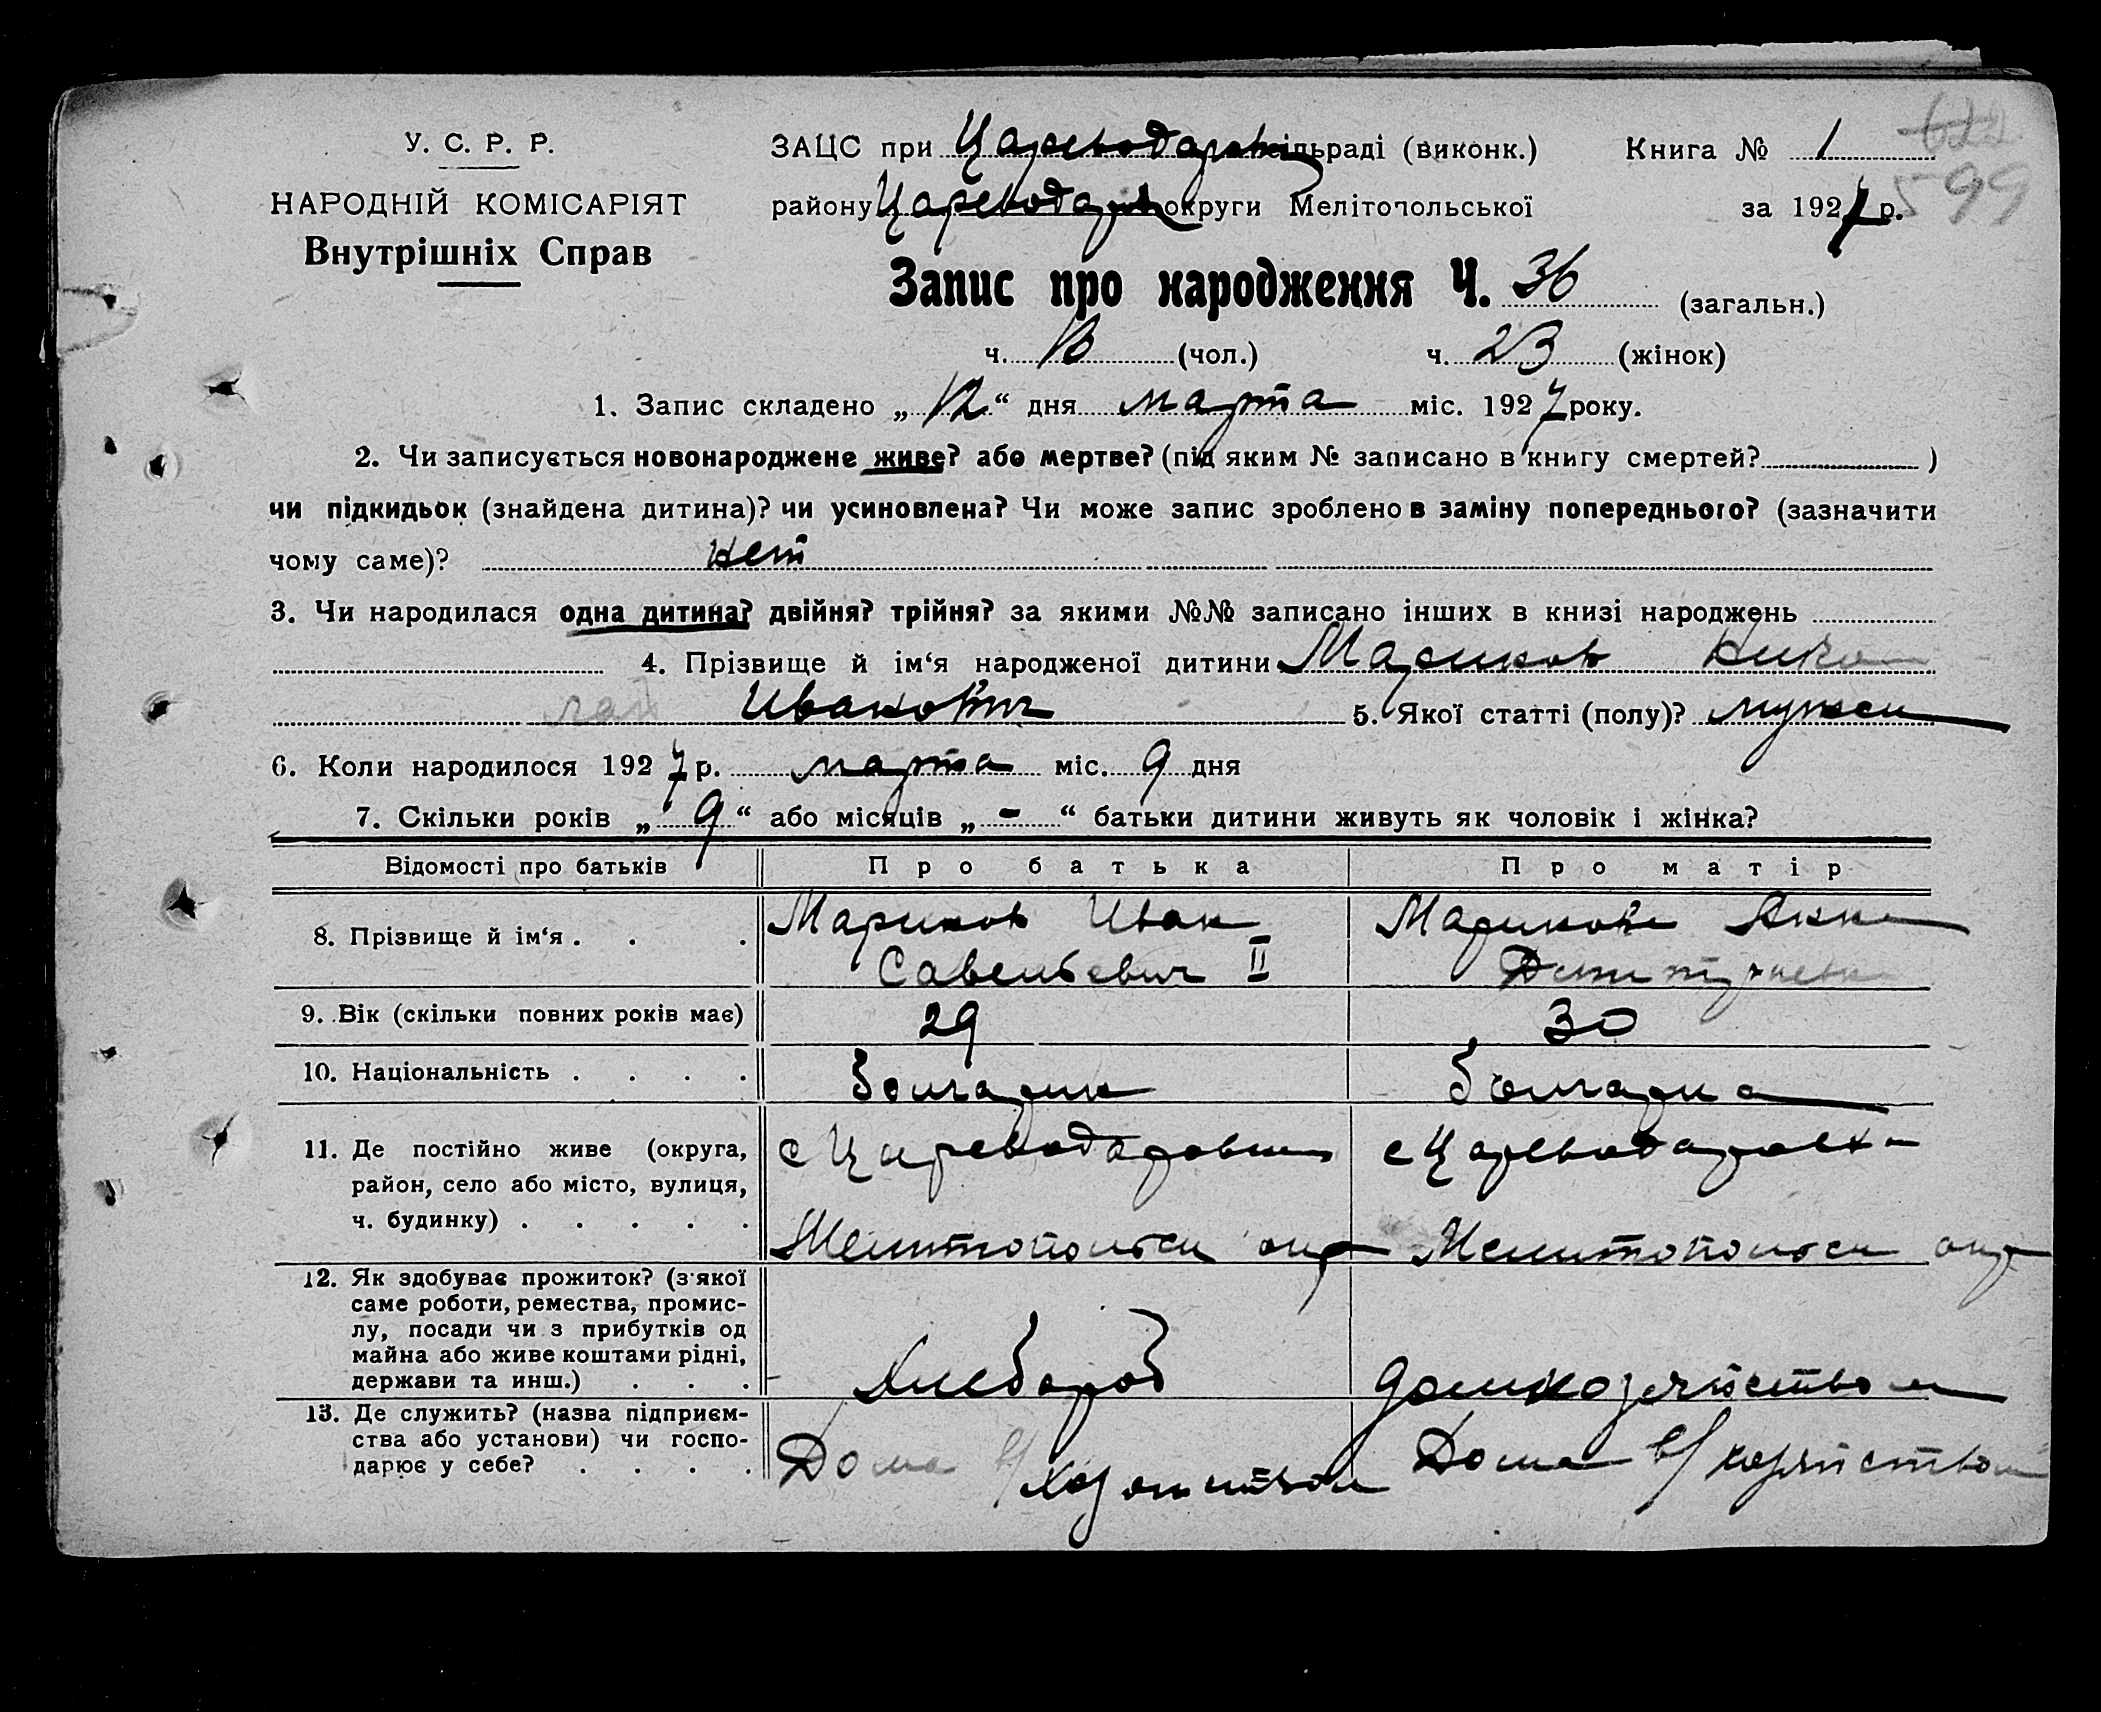 У. С. Р. Р.
НАРОДНІЙ КОМІСАРІЯТ
Внутрішніх Справ
622
599
ЗАЦС при Цареводаров сільраді (виконк.) Книга № 1
району Цареводар округи Мелітопольської за 1927 р.
Запис про народження Ч. 36 (загальн.)
ч. 13 (чол.) ч. 23 (жінок)
1. Запис складено „ 12 “ дня марта міс. 1927 року.
2. Чи записується новонароджене живе? або мертве? (під яким № записано в книгу смертей? )
чи підкидьок (знайдена дитина)? чи усиновлена? Чи може запис зроблено в заміну попереднього? (зазначити
чому саме)? нет
3. Чи народилася одна дитина? двійня? трійня? за якими №№ записано інших в книзі народжень
4. Прізвище й ім‘я народженої дитини Маринов Нико
лай Иванович 5. Якої статті (полу)? мужск
6. Коли народилося 1927 р. марта міс. 9 дня
7. Скільки років „ 9 “ або місяців „ - “ батьки дитини живуть як чоловік і жінка?
Відомості про батьків Про батька Про матір
8. Прізвище й ім‘я . . . Маринов Иван Маринова Анна
Савельевич II Дмитриевна
9. Вік (скільки повних років має) 29 30
10. Національність . . . . болгарин болгарка
11. Де постійно живе (округа, с Цареводаровка с Цареводаровка
район, село або місто, вулиця,
ч. будинку) . . . . . Мелитопольск окр Мелитопольск окр
12. Як здобуває прожиток? (з якої
саме роботи, ремества, промис-
лу, посади чи з прибутків од
майна або живе коштами рідні,
держави та инш.) . . . Хлебороб домхозяйством
13. Де служить? (назва підприєм-
ства або установи) чи госпо-
дарює у себе? . . . . Дома в/ хозяйством Дома в/ хозяйством